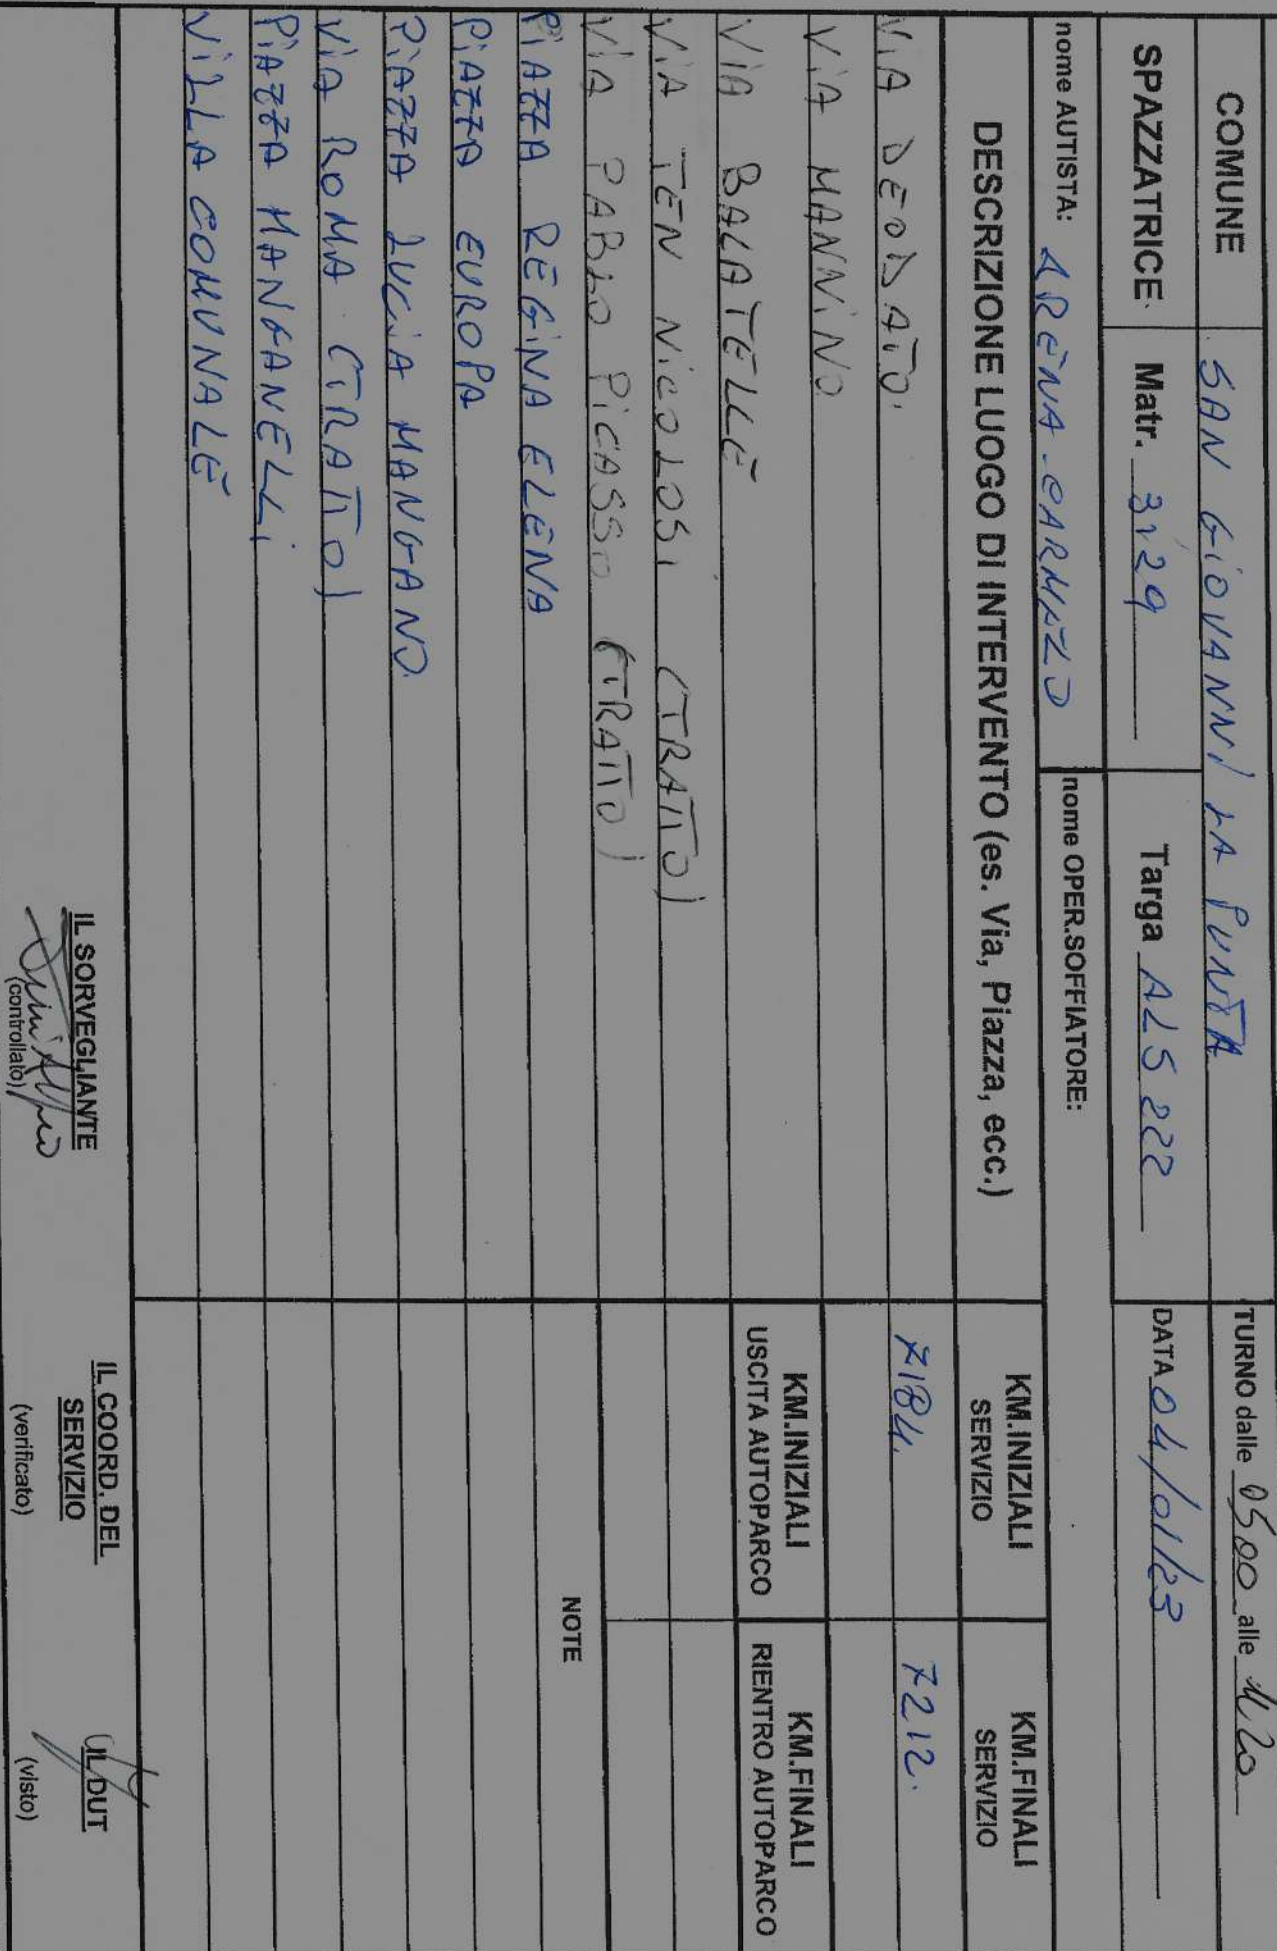 COMUNE SAN GIOVANNI LA PUNTA TURNO dalle 0500 alle 1120
SPAZZATRICE Matr. 3129 Targa ALS 222 DATA 04/01/23
nome AUTISTA: ARENA CARMELO nome OPER.SOFFIATORE:
DESCRIZIONE LUOGO DI INTERVENTO (es. Via, Piazza, ecc.) KM.INIZIALI SERVIZIO KM.FINALI SERVIZIO
VIA DEODATO. 7184. 7212.
VIA MANNINO
VIA BALATELLE KM.INIZIALI USCITA AUTOPARCO KM.FINALI RIENTRO AUTOPARCO
VIA TEN NICOLOSI (TRATTO)
VIA PABLO PICASSO (TRATTO)
PIAZZA REGINA ELENA NOTE
PIAZZA EUROPA
PIAZZA LUCIA MANGANO.
VIA ROMA (TRATTO)
PIAZZA MANGANELLI
VILLA COMUNALE
IL SORVEGLIANTE IL COORD. DEL SERVIZIO IL DUT
(controllato) (verificato) (visto)